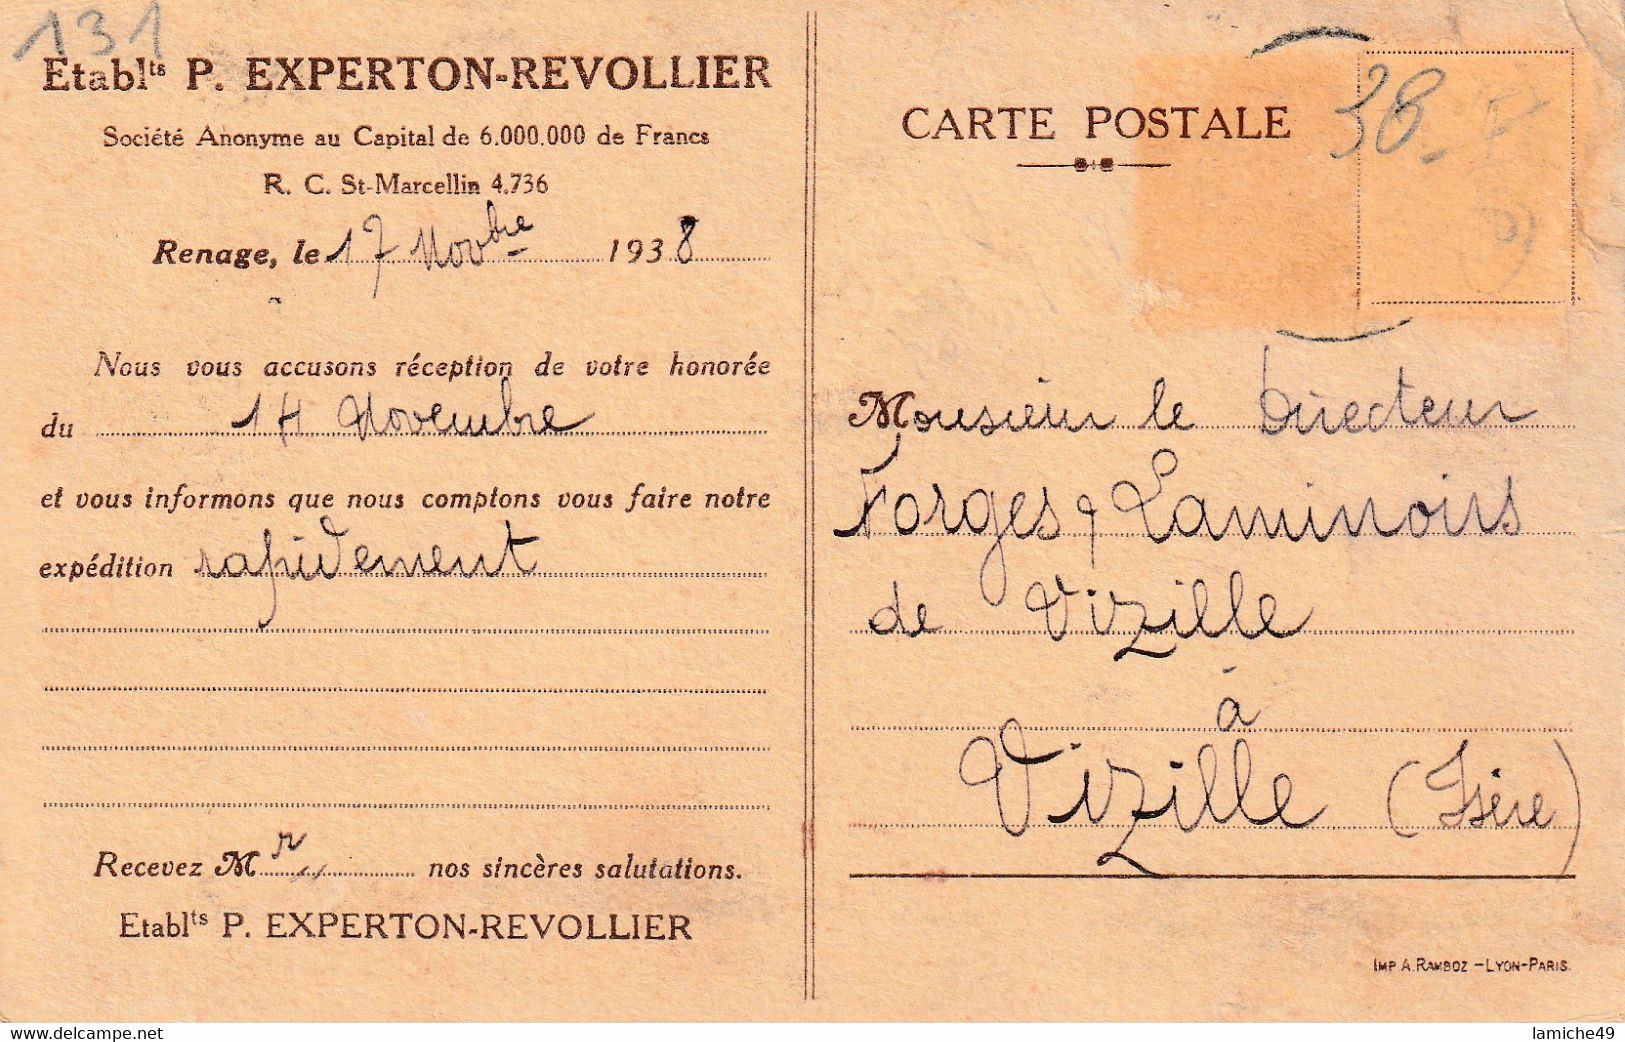 131
Etabl.ts P. EXPERTON-REVOLLIER
Société Anonyme au Capital de 6.000.000 de Francs
R. C. St-Marcellin 4.736
Renage, le 17 Novbre 1938
Nous vous accusons réception de votre honorée
du 14 Novembre
et vous informons que nous comptons vous faire notre
expédition rapidement
Recevez Mr nos sincères salutations.
Etabl.ts P. EXPERTON-REVOLLIER
CARTE POSTALE
38
Monsieur le Directeur
Forges & Laminoirs
de Vizille
à
Vizille (Isère)
IMP A. RAMBOZ - LYON-PARIS.
delcampe.net
lamiche49